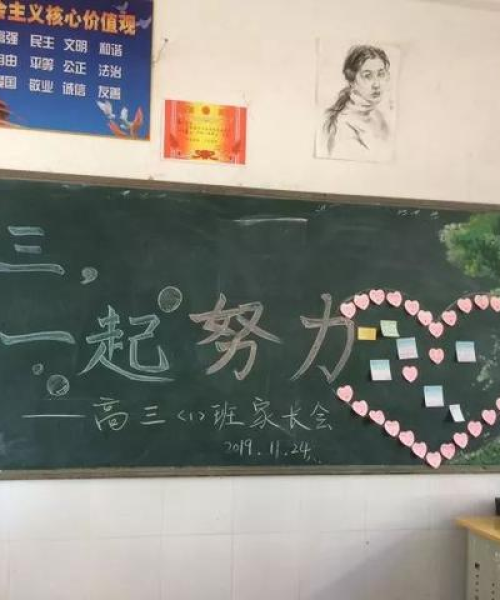 会主义核心价值观
富强 民主 文明 和谐
自由 平等 公正 法治
爱国 敬业 诚信 友善
三，
一起努力
——高三<1>班家长会
2019.11.24